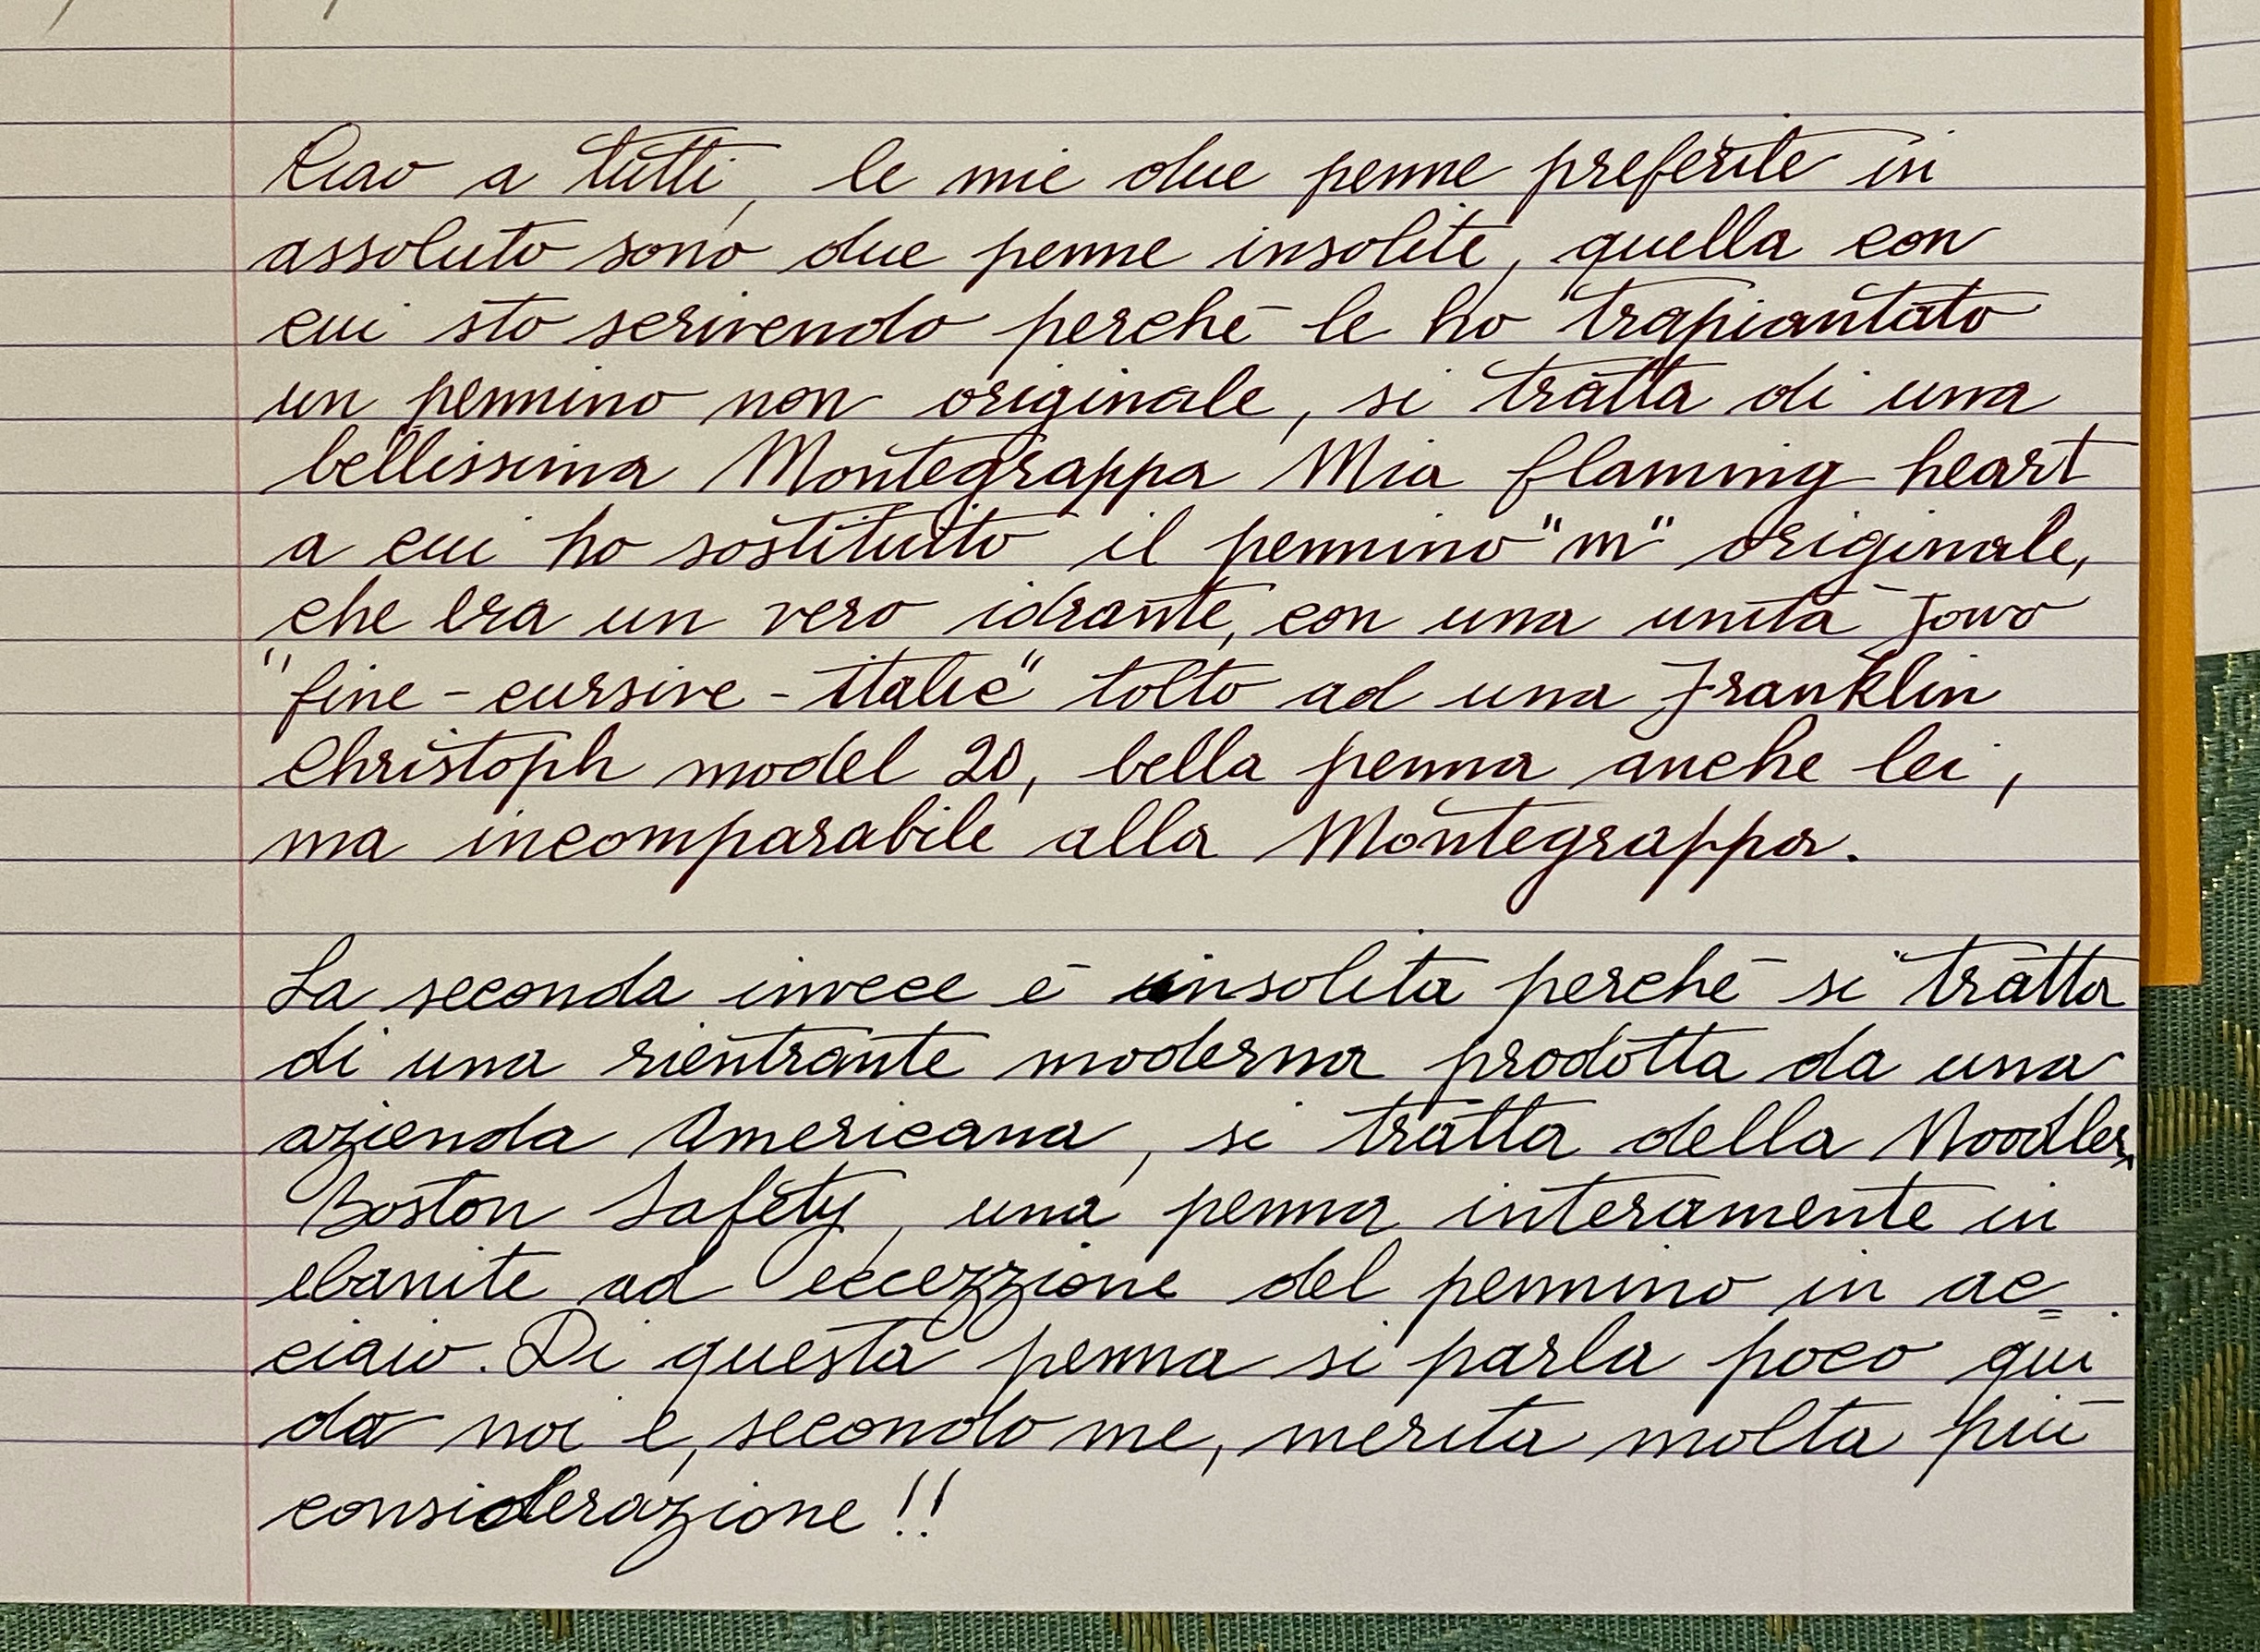 Ciao a tutti, le mie due penne preferite in
assoluto sono due penne insolite, quella con
cui sto scrivendo perché le ho trapiantato
un pennino non originale, si tratta di una
bellissima Montegrappa Mia flaming heart
a cui ho sostituito il pennino "m" originale,
che era un vero idrante, con una unità Jowo
"fine - cursive - italic" tolto ad una Franklin
Christoph model 20, bella penna anche lei,
ma incomparabile alla Montegrappa.
La seconda invece è insolita perché si tratta
di una rientrante moderna prodotta da una
azienda Americana, si tratta della Noodlers
Boston Safety, una penna interamente in
ebanite ad eccezzione del pennino in ac=
ciaio. Di questa penna si parla poco qui
da noi e, secondo me, merita molta più
considerazione!!